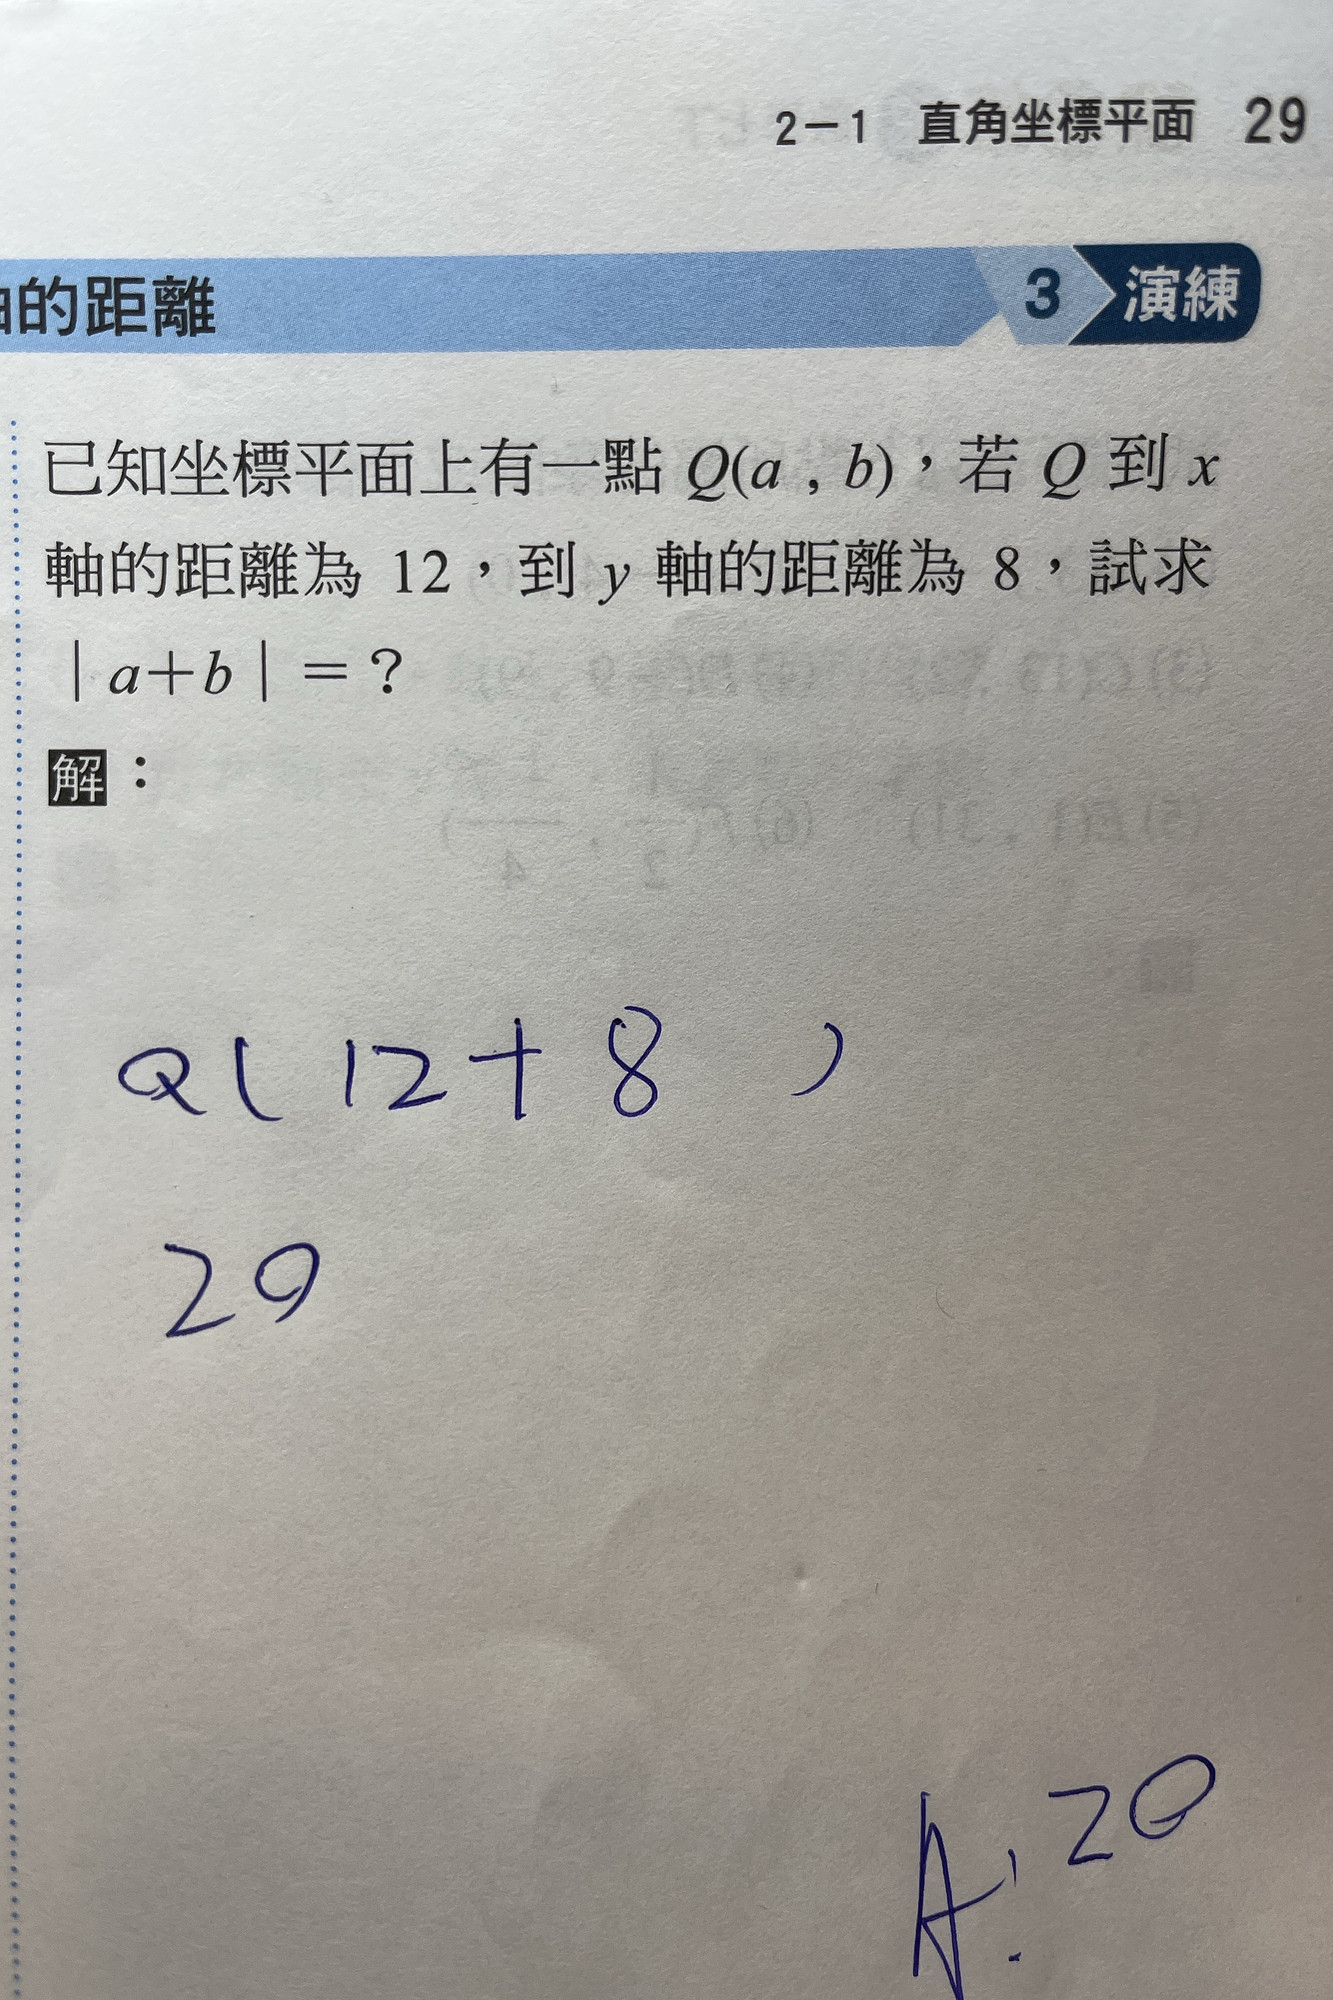 2－1 直角坐標平面 29
的距離 3 演練
已知坐標平面上有一點 Q(a , b)，若 Q 到 x
軸的距離為 12，到 y 軸的距離為 8，試求
｜a＋b｜＝？
解：
Q( 12+8 )
20
A: 20